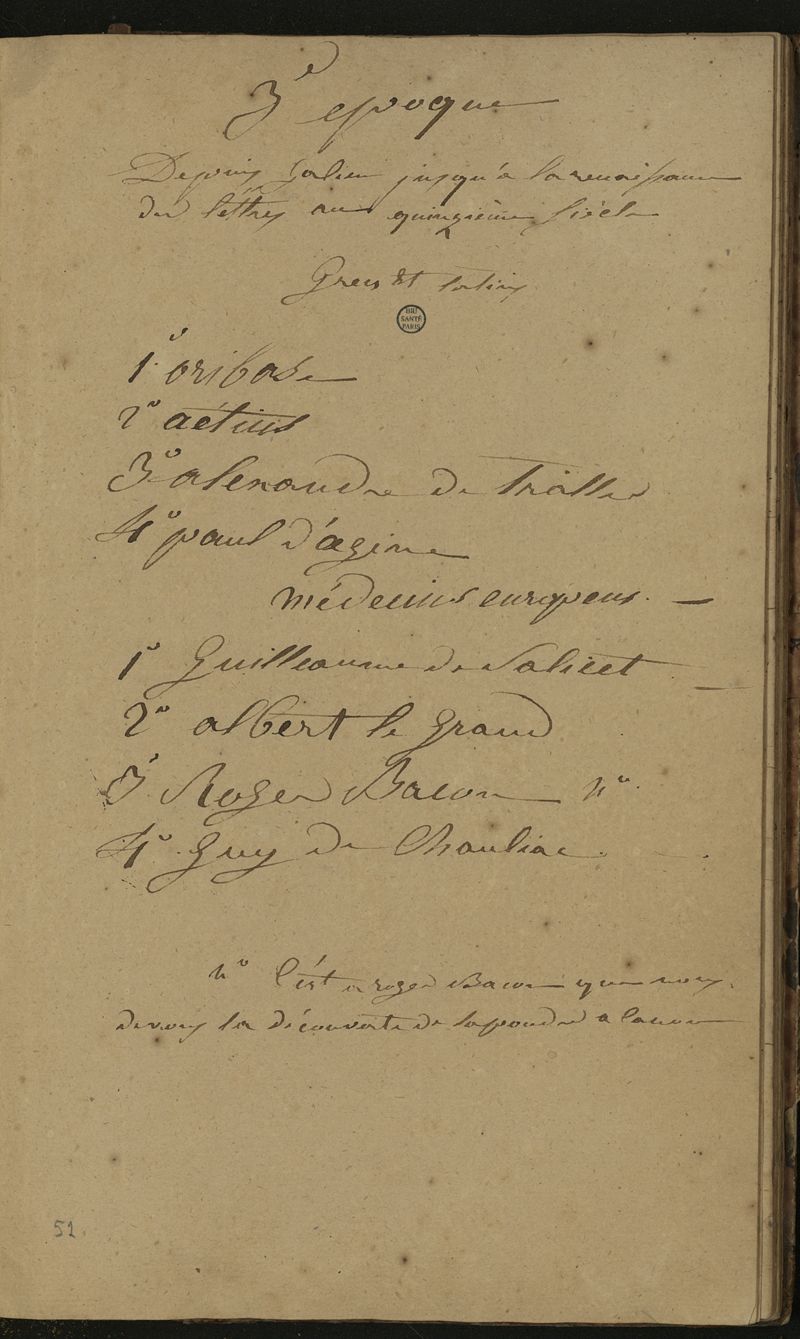 3e epoque
Depuis Galien jusqu'a la renaissance
des léttres au quinzieme siécle
Grecs et latins
BIU
SANTÉ
PARIS
1o oribase
2o aétius
3o alexandre de tralles
4o paul d'agine
médecins européens. —
1o Guilleaume de Salicet —
2o albert le grand
3o Roger Bacon no
4o Guy de Chauliac
no C'ést a roger Bacon que nous
devons la découverte de la poudre a canon
51